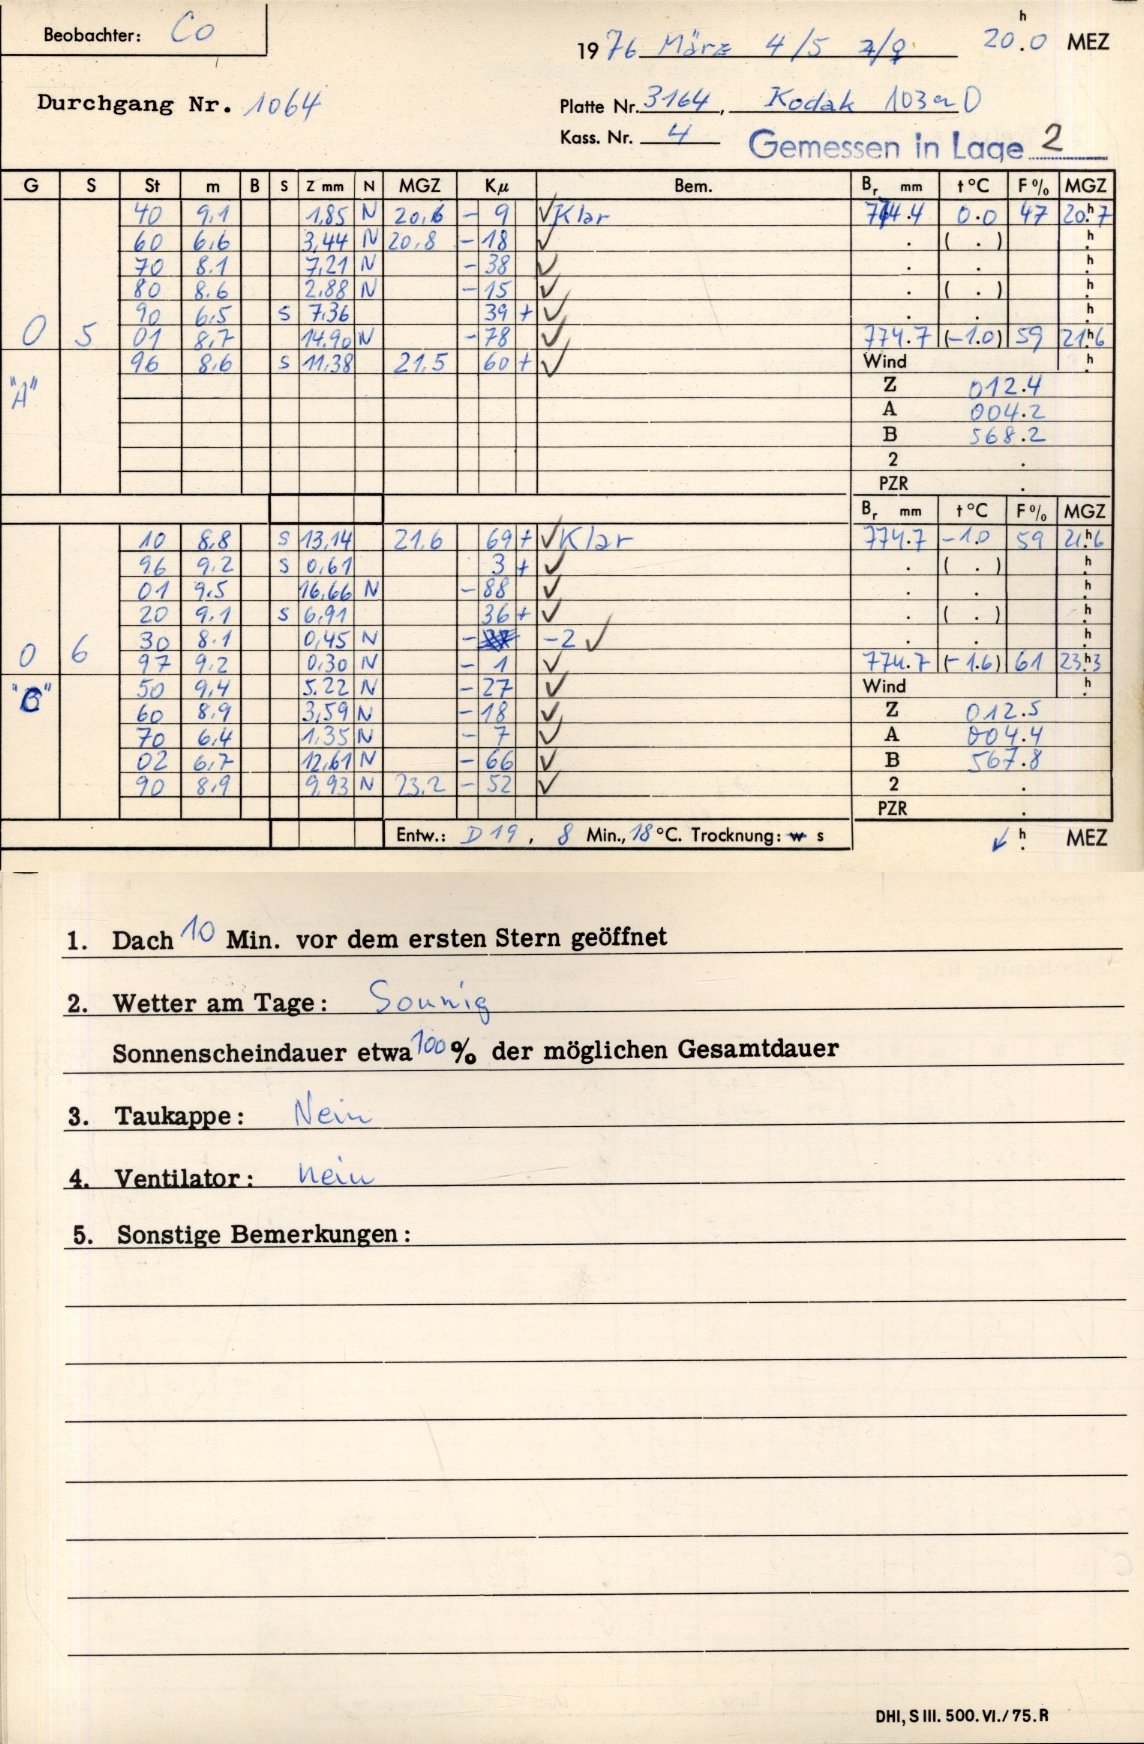 Beobachter: Co
1976 März 4/5 20.0 h MEZ
Durchgang Nr. 1064
Platte Nr. 3164, Kodak 103a D
Kass. Nr. 4
Gemessen in Lage 2
G S St m B S Z mm N MGZ Kμ Bem. Br mm t °C F % MGZ
40 9,1 1,85 N 20,6 - 9 ✓ Klar 774.4 0.0 47 20.7 h
60 6,6 3,44 N 20,8 - 18 ✓ . ( . ) h
70 8.1 7,21 N - 38 ✓ . . h
80 8.6 2,88 N - 15 ✓ . ( . ) h
90 6,5 S 7,36 39 + ✓ . . h
0 5 01 8,7 14,90 N - 78 ✓ 774.7 (-1.0) 59 21.6 h
96 8,6 S 11,38 21,5 60 + ✓ Wind h
"A" Z 012.4
A 004.2
B 568.2
2 .
PZR .
Br mm t °C F % MGZ
10 8,8 S 13,14 21,6 69 + ✓ Klar 774.7 -1.0 59 21.6 h
96 9,2 S 0,61 3 + ✓ . ( . ) h
01 9,5 16,66 N - 88 ✓ . . h
20 9,1 S 6,91 36 + ✓ . ( . ) h
30 8,1 0,45 N - -2 ✓ . . h
0 6 97 9,2 0,30 N - 1 ✓ 774.7 (-1.6) 61 23.3 h
"C" 50 9,4 5,22 N - 27 ✓ Wind h
60 8,9 3,59 N - 18 ✓ Z 012.5
70 6,4 1,35 N - 7 ✓ A 004.4
02 6,7 12,61 N - 66 ✓ B 567.8
90 8,9 9,93 N 23,2 - 52 ✓ 2 .
PZR .
Entw.: D 19, 8 Min., 18 °C. Trocknung: w s h . MEZ
1. Dach 10 Min. vor dem ersten Stern geöffnet
2. Wetter am Tage: Sonnig
Sonnenscheindauer etwa 100 % der möglichen Gesamtdauer
3. Taukappe: Nein
4. Ventilator: nein
5. Sonstige Bemerkungen:
DHI, S III. 500. VI./75. R